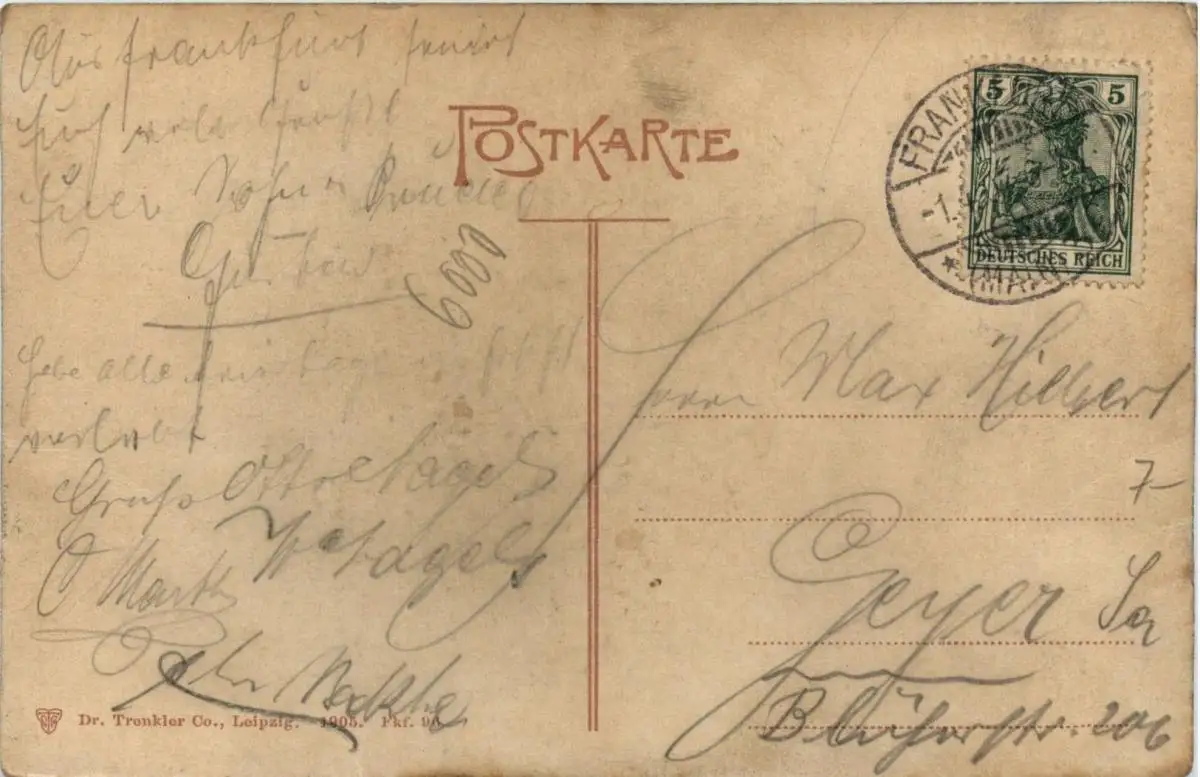 Aus Frankfurt sendet
Euch viele Grüße
Euer Sohn u Bruder
Gustav
6000
habe alle Feiertage
verlebt
Gruß Otto Nagel
W Nagel
O Mark
POSTKARTE
FRANKFURT
-1.
* (MAIN)
5 5
DEUTSCHES REICH
Herrn Max Hilbert
7-
Geyer Sa
Blücherstr. 206
Dr. Trenkler Co., Leipzig. 1905. Fkf. 96